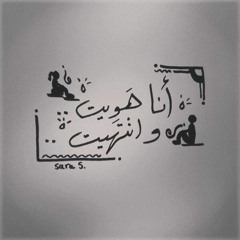 أنا هَويت ..
و انتهيت ..
sara S.